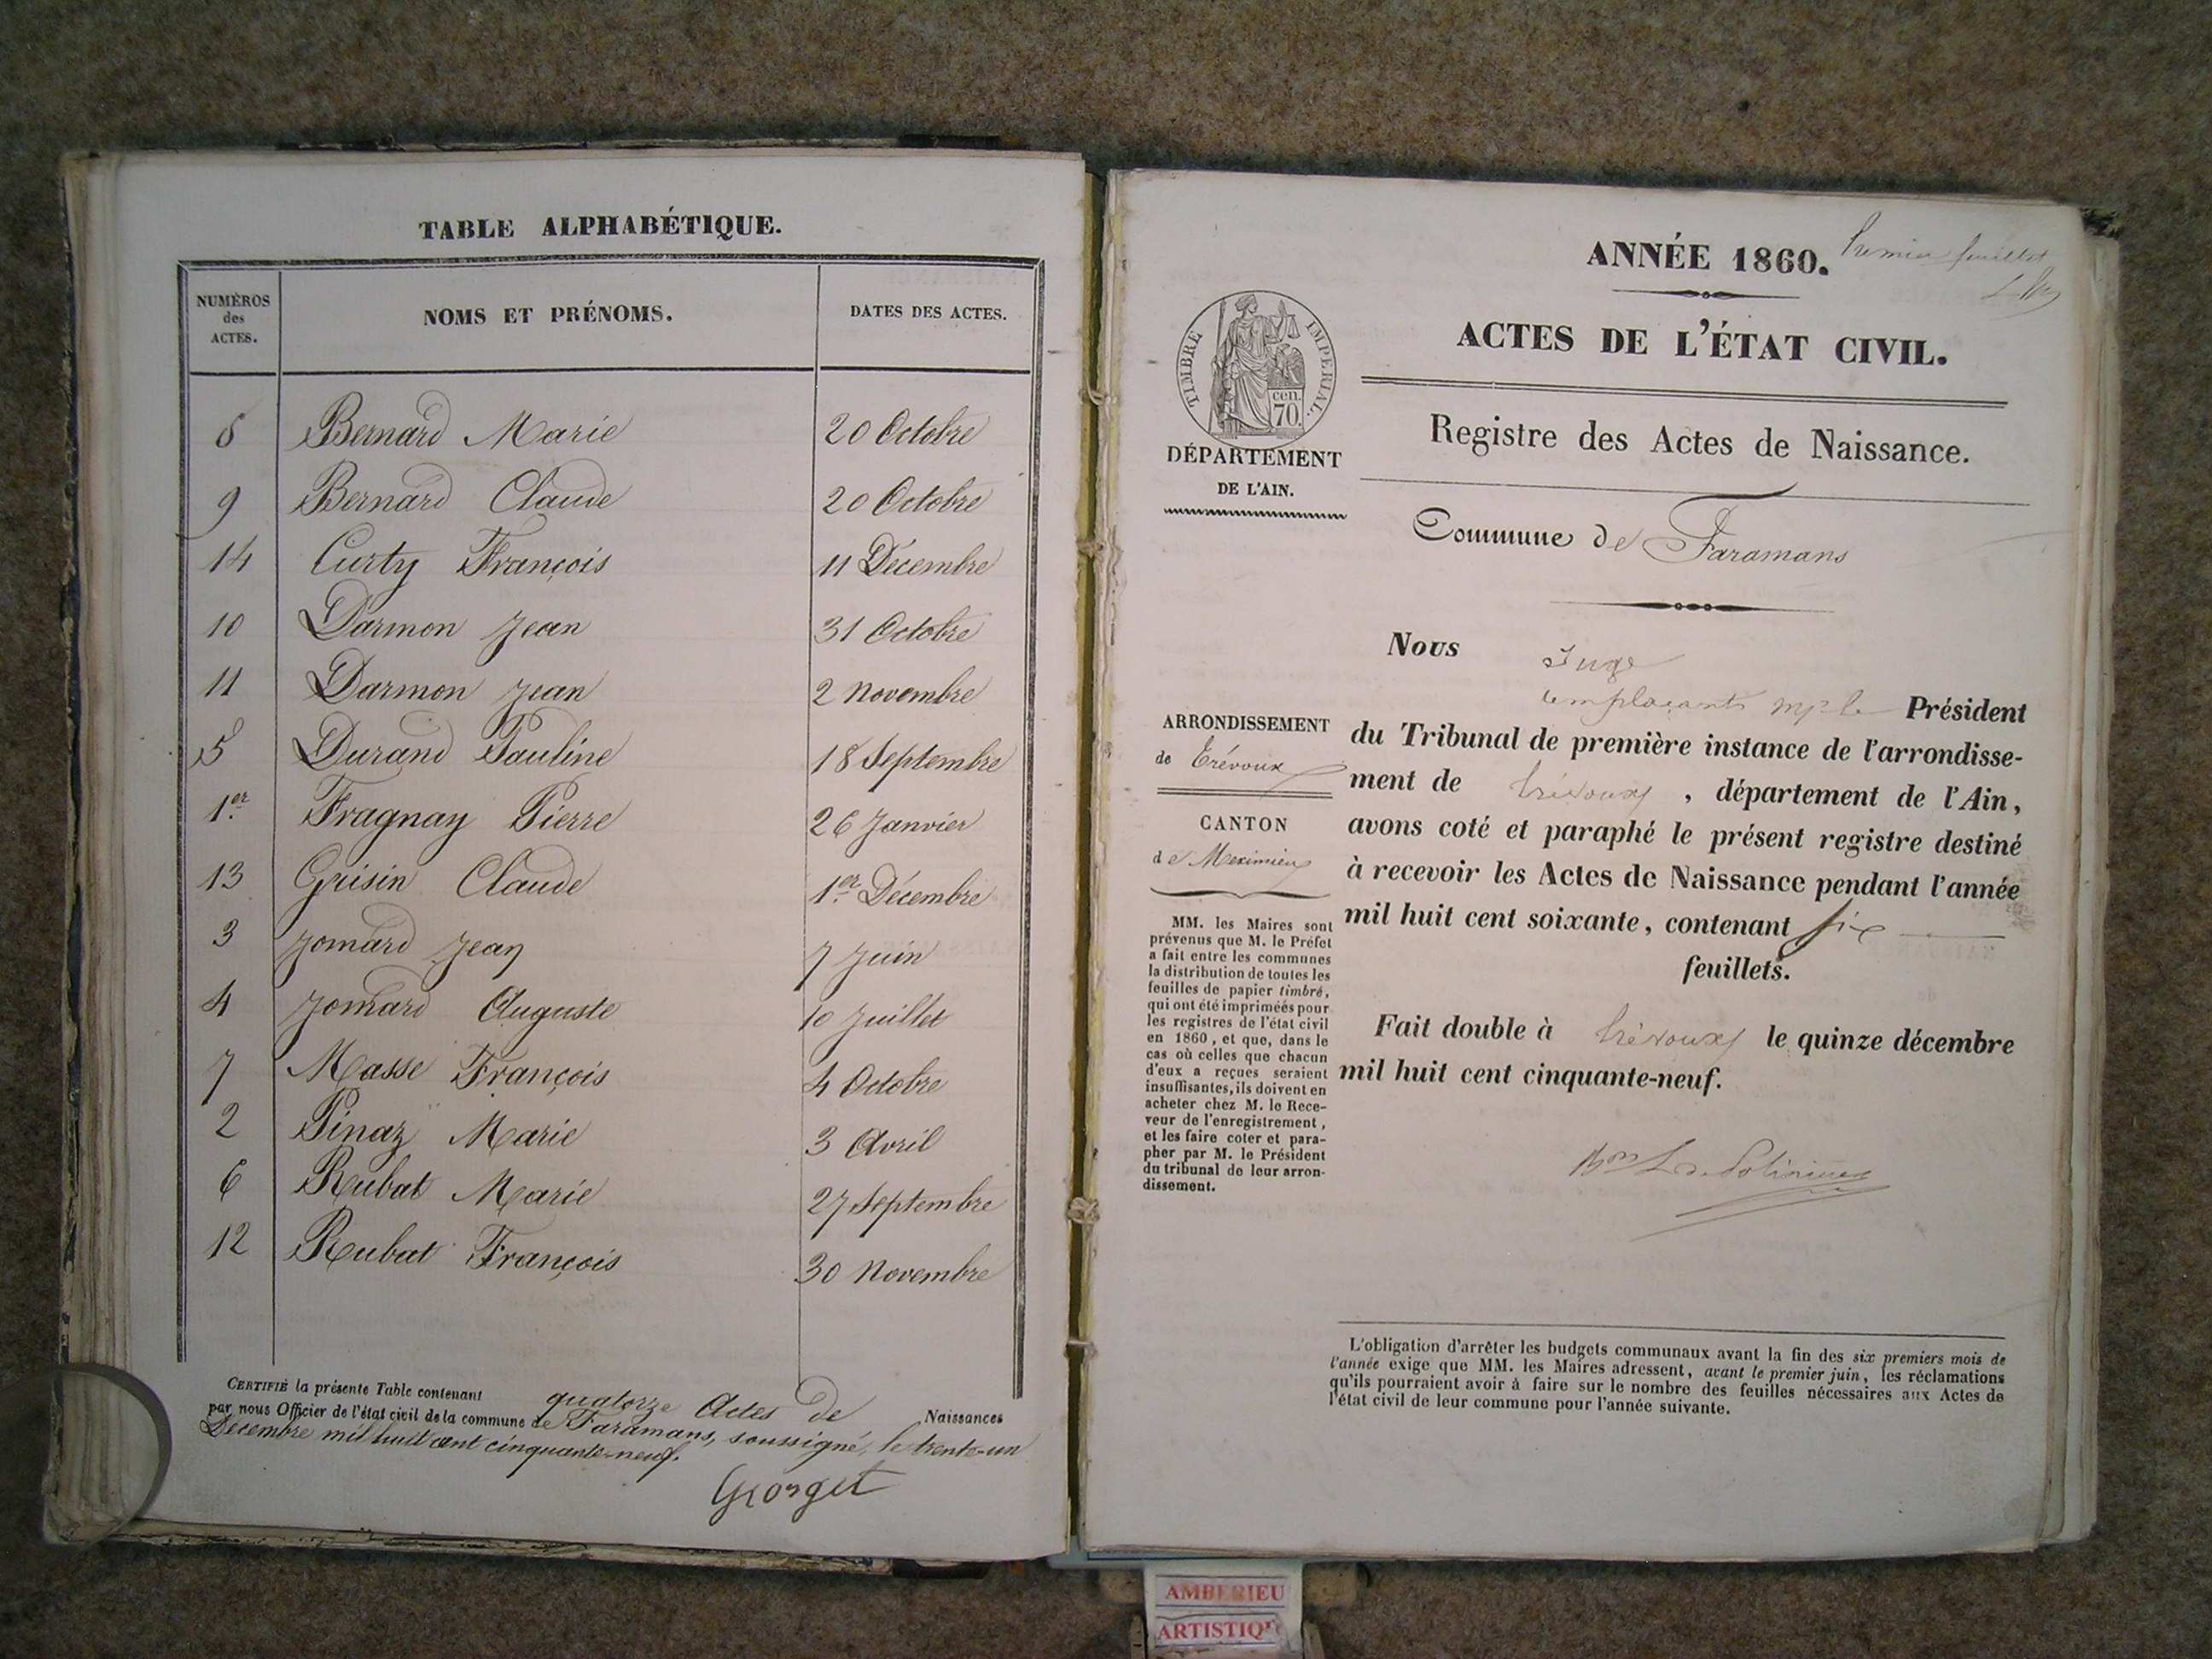 TABLE ALPHABÉTIQUE.
NUMÉROS des ACTES.
NOMS ET PRÉNOMS.
DATES DES ACTES.
8 Bernard Marie 20 Octobre
9 Bernard Claude 20 Octobre
14 Curty François 11 Décembre
10 Darmon Jean 31 Octobre
11 Darmon Jean 2 Novembre
5 Durand Pauline 18 Septembre
1er Fragnay Pierre 26 Janvier
13 Grisin Claude 1er Décembre
3 Jomard Jean 7 Juin
4 Jomard Auguste 10 Juillet
7 Masse François 4 Octobre
2 Pinaz Marie 3 Avril
6 Rubat Marie 27 Septembre
12 Rubat François 30 Novembre
CERTIFIÉ la présente Table contenant quatorze Actes de Naissances
par nous Officier de l'état civil de la commune de Faramans, soussigné, le trente-un
Décembre mil huit cent cinquante-neuf.
Georget
ANNÉE 1860.
Premier feuillet
ACTES DE L'ÉTAT CIVIL.
TIMBRE IMPERIAL.
cen.
70.
DÉPARTEMENT
DE L'AIN.
Registre des Actes de Naissance.
Commune de Faramans
ARRONDISSEMENT
de Trévoux
CANTON
de Meximieux
MM. les Maires sont
prévenus que M. le Préfet
a fait entre les communes
la distribution de toutes les
feuilles de papier timbré,
qui ont été impriméés pour
les registres de l'état civil
en 1860, et que, dans le
cas où celles que chacun
d'eux a reçues seraient
insuffisantes, ils doivent en
acheter chez M. le Rece-
veur de l'enregistrement,
et les faire coter et para-
pher par M. le Président
du tribunal de leur arron-
dissement.
Nous Juge
Président
du Tribunal de première instance de l'arrondisse-
ment de Trévoux, département de l'Ain,
avons coté et paraphé le présent registre destiné
à recevoir les Actes de Naissance pendant l'année
mil huit cent soixante, contenant six
feuillets.
Fait double à Trévoux le quinze décembre
mil huit cent cinquante-neuf.
L'obligation d'arrêter les budgets communaux avant la fin des six premiers mois de
l'année exige que MM. les Maires adressent, avant le premier juin, les réclamations
qu'ils pourraient avoir à faire sur le nombre des feuilles nécessaires aux Actes de
l'état civil de leur commune pour l'année suivante.
AMBERIEU
ARTISTIQU